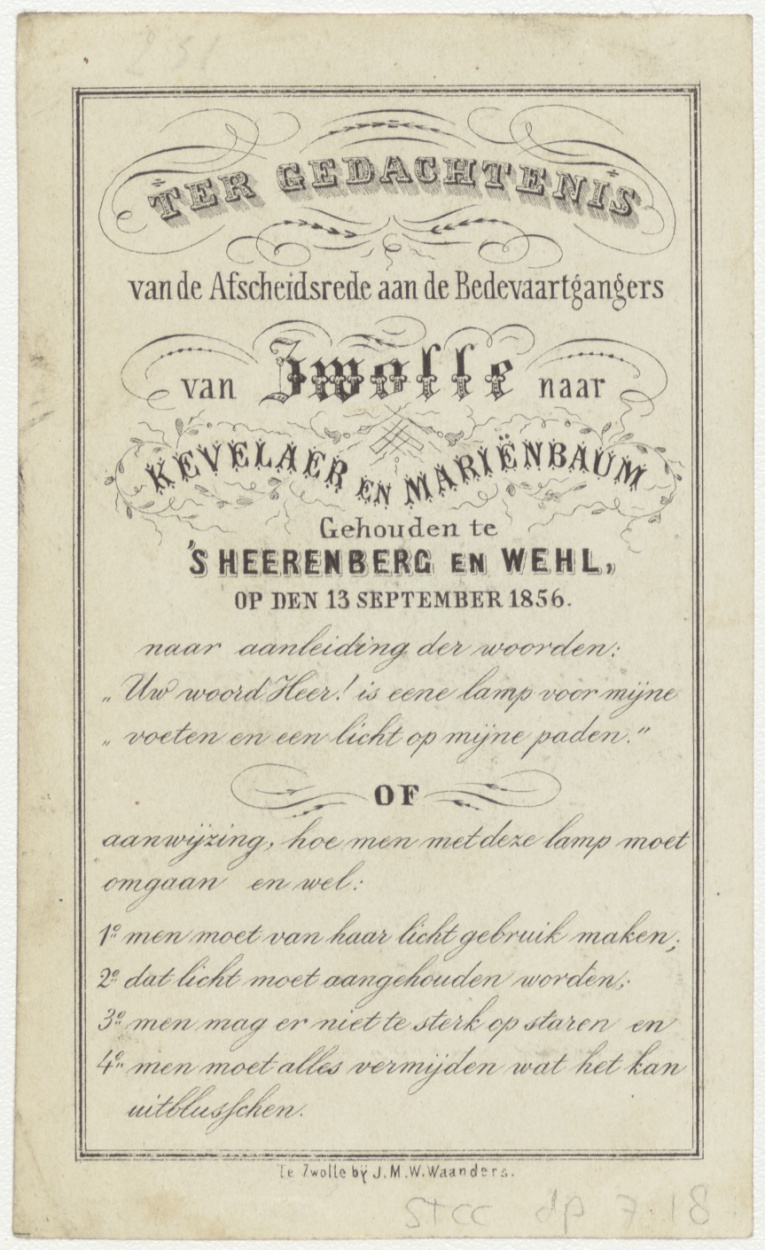 TER GEDACHTENIS
van de Afscheidsrede aan de Bedevaartgangers
van Zwolle naar
KEVELAER EN MARIËNBAUM
Gehouden te
'S HEERENBERG EN WEHL,
OP DEN 13 SEPTEMBER 1856.
naar aanleiding der woorden:
„ Uw woord Heer! is eene lamp voor mijne
„ voeten en een licht op mijne paden."
OF
aanwijzing, hoe men met deze lamp moet
omgaan en wel:
1º men moet van haar licht gebruik maken;
2º dat licht moet aangehouden worden;
3º men mag er niet te sterk op staren en
4º men moet alles vermijden wat het kan
uitblusschen.
Te Zwolle bij J. M. W. Waanders.
STCC dp 7.18